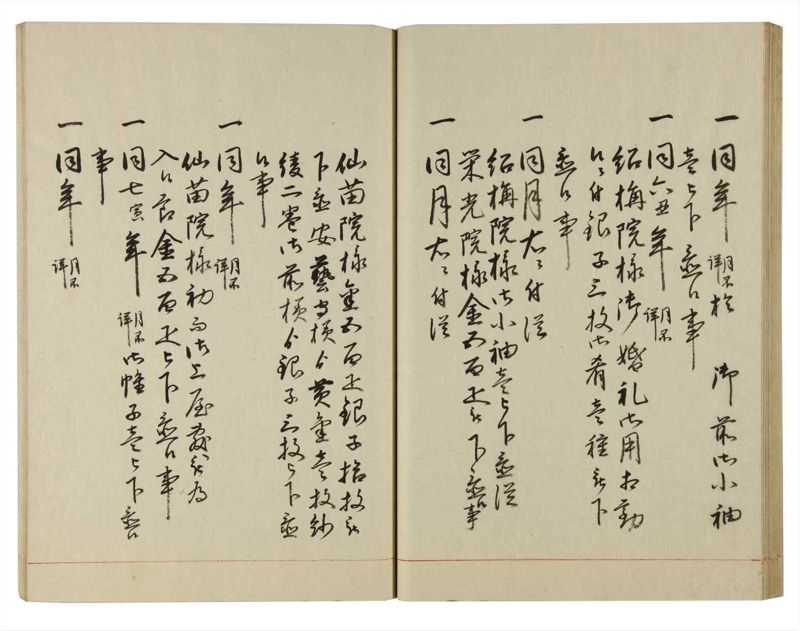 一同年月不詳於 御前御小袖
壱ツ下置候事
一同六丑年月不詳
紹梅院様御婚礼御用相勤
候ニ付銀子三枚御肴壱種被下
置候事
一同月右ニ付従
紹梅院様御小袖壱ツ下置従
栄光院様金五百疋被下置候事
一同月右ニ付従
仙苗院様金五百疋銀子拾枚被
下置安藝守様ゟ黄金壱枚紗
綾二巻御前様ゟ銀子三枚ツ下置
候事
一同年月不詳
仙苗院様初而御上屋敷被為
入候節金五百疋ツ下置候事
一同七寅年月不詳御帷子壱ツ下置候
事
一同年月不詳